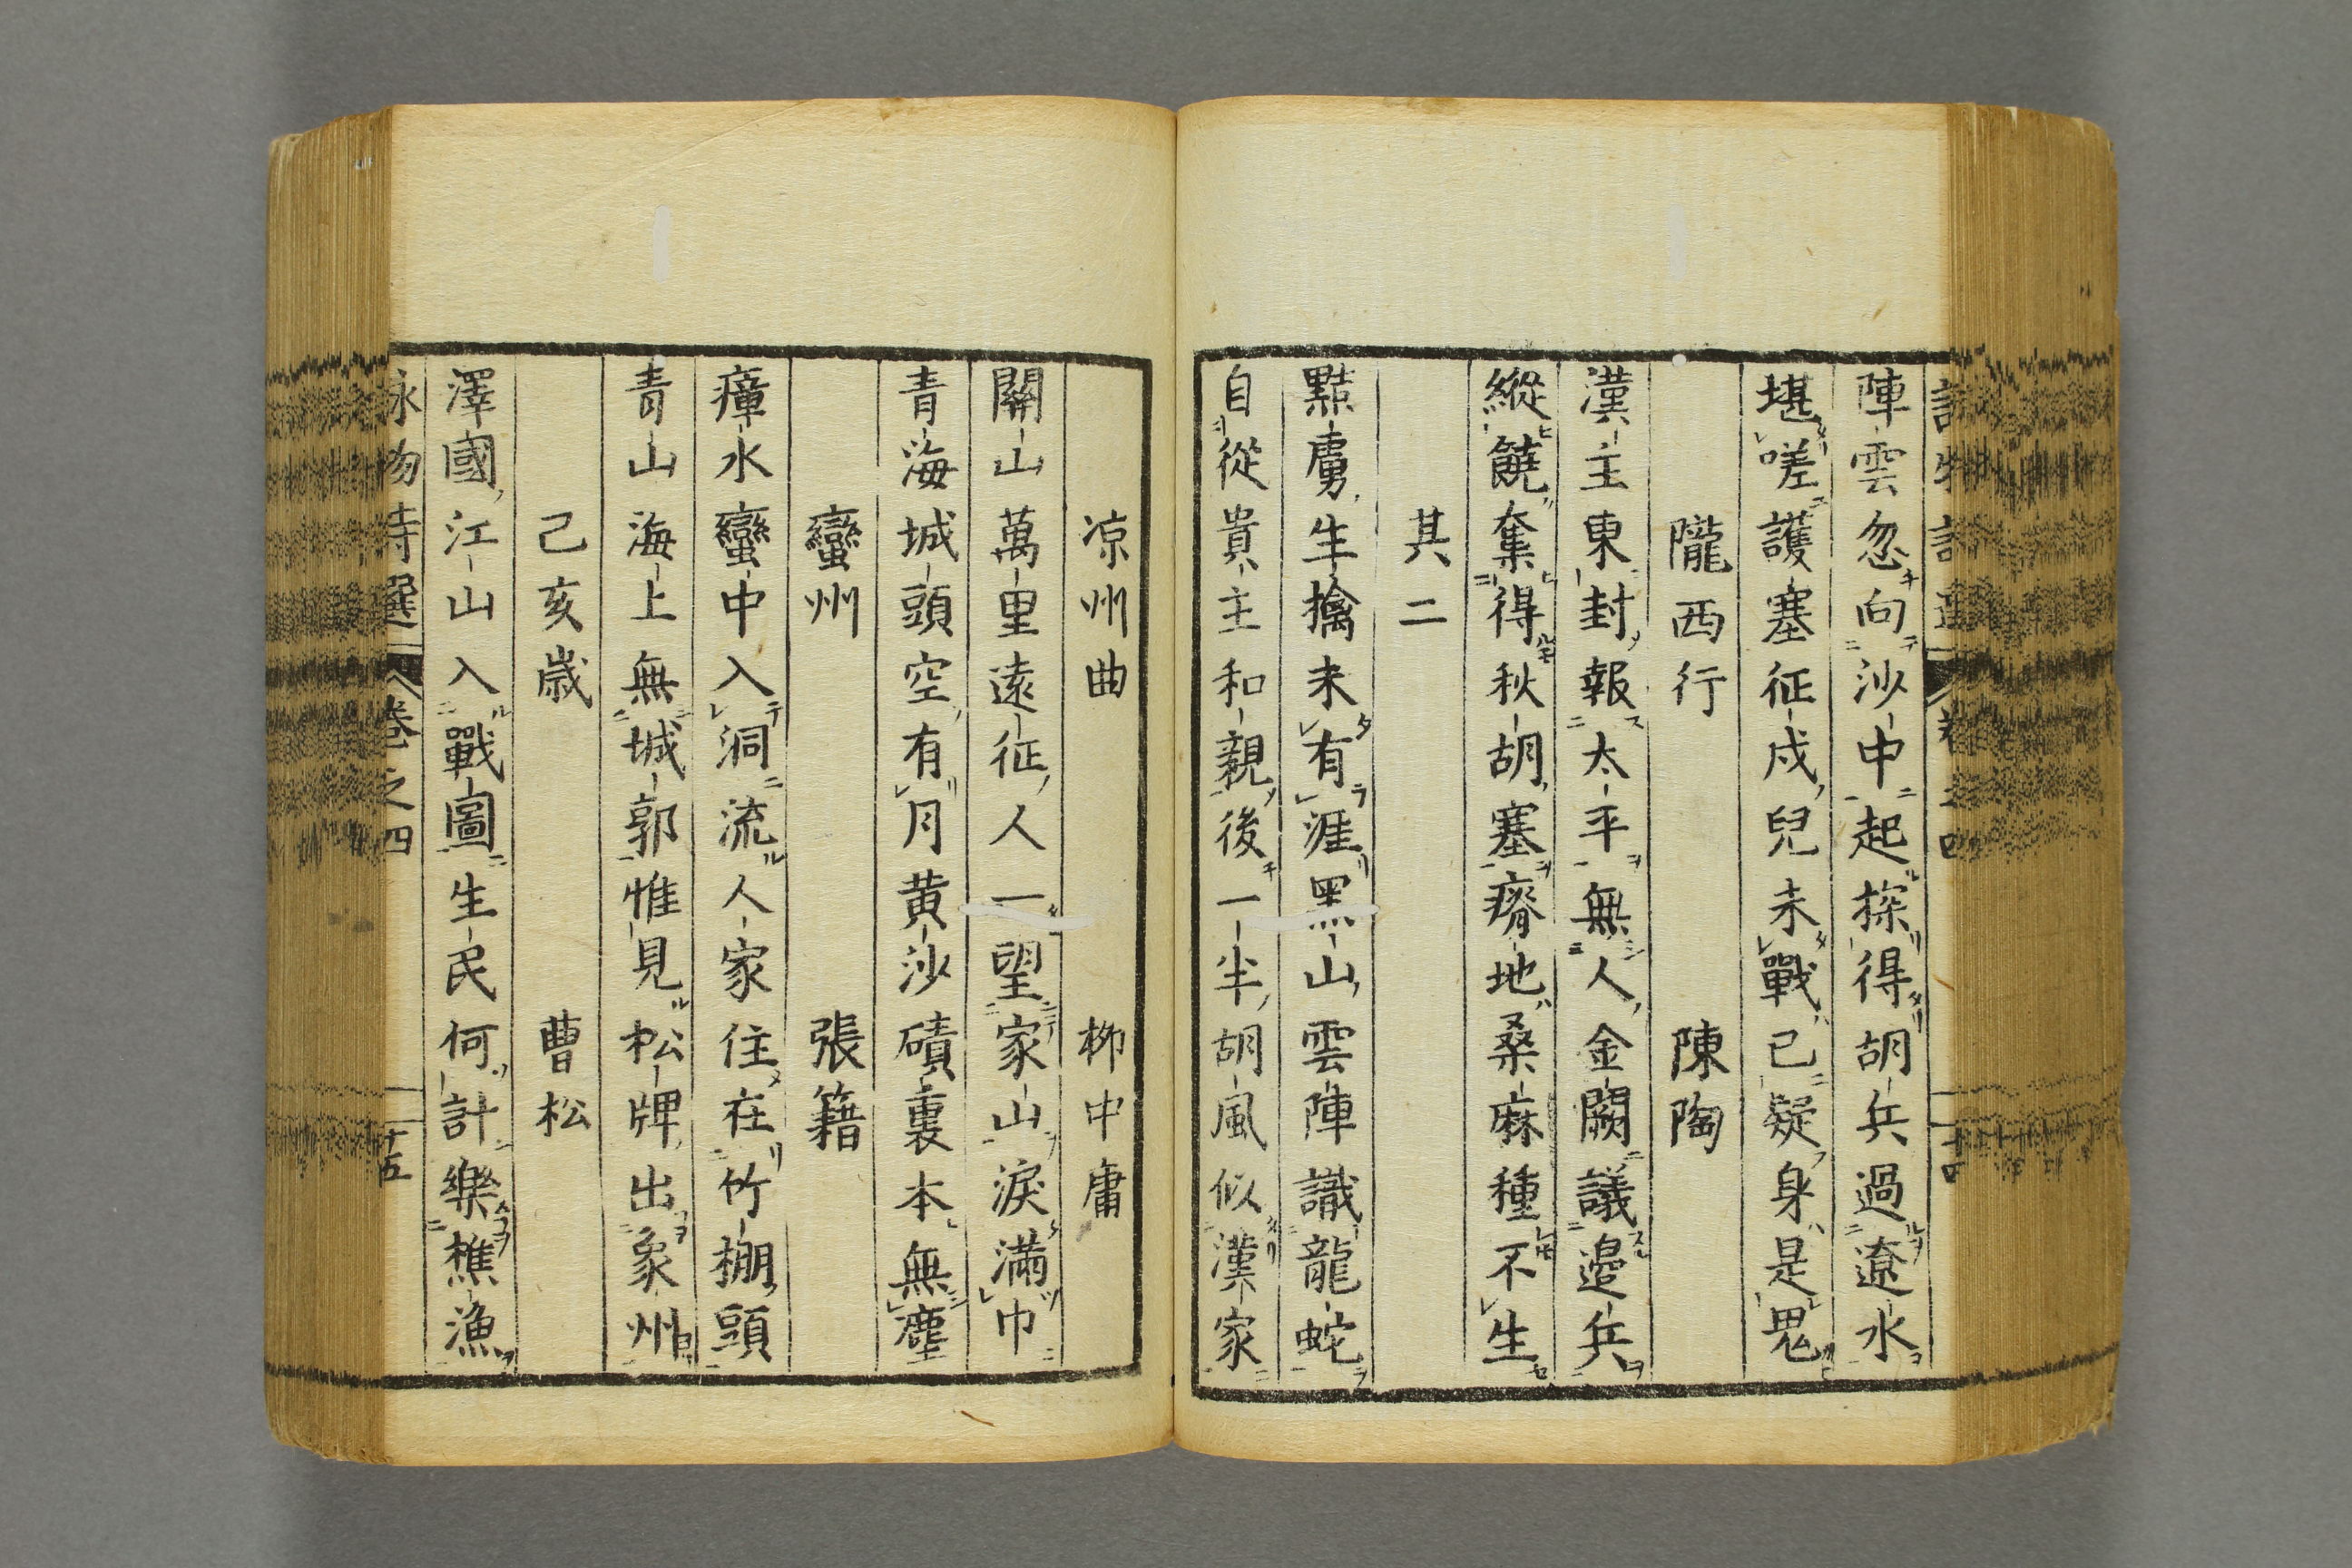 陣雲忽向沙中起探得胡兵過遼水
堪嗟護塞征戍兒未戰已疑身是鬼
隴西行 陳陶
漢主東封報太平無人金闕議邊兵
縱饒奪得秋胡塞瘠地桑麻種不生
其二
黠虜生擒未有涯黑山雲陣識龍蛇
自從貴主和親後一半胡風似漢家
凉州曲 柳中庸
關山萬里遠征人一望家山淚滿巾
青海城頭空有月黄沙磧裏本無塵
蠻州 張籍
瘴水蠻中入洞流人家住在竹棚頭
青山海上無城郭惟見松牌出象州
己亥歳 曹松
澤國江山入戰圖生民何計樂樵漁
詠物詩選 卷之四 十五